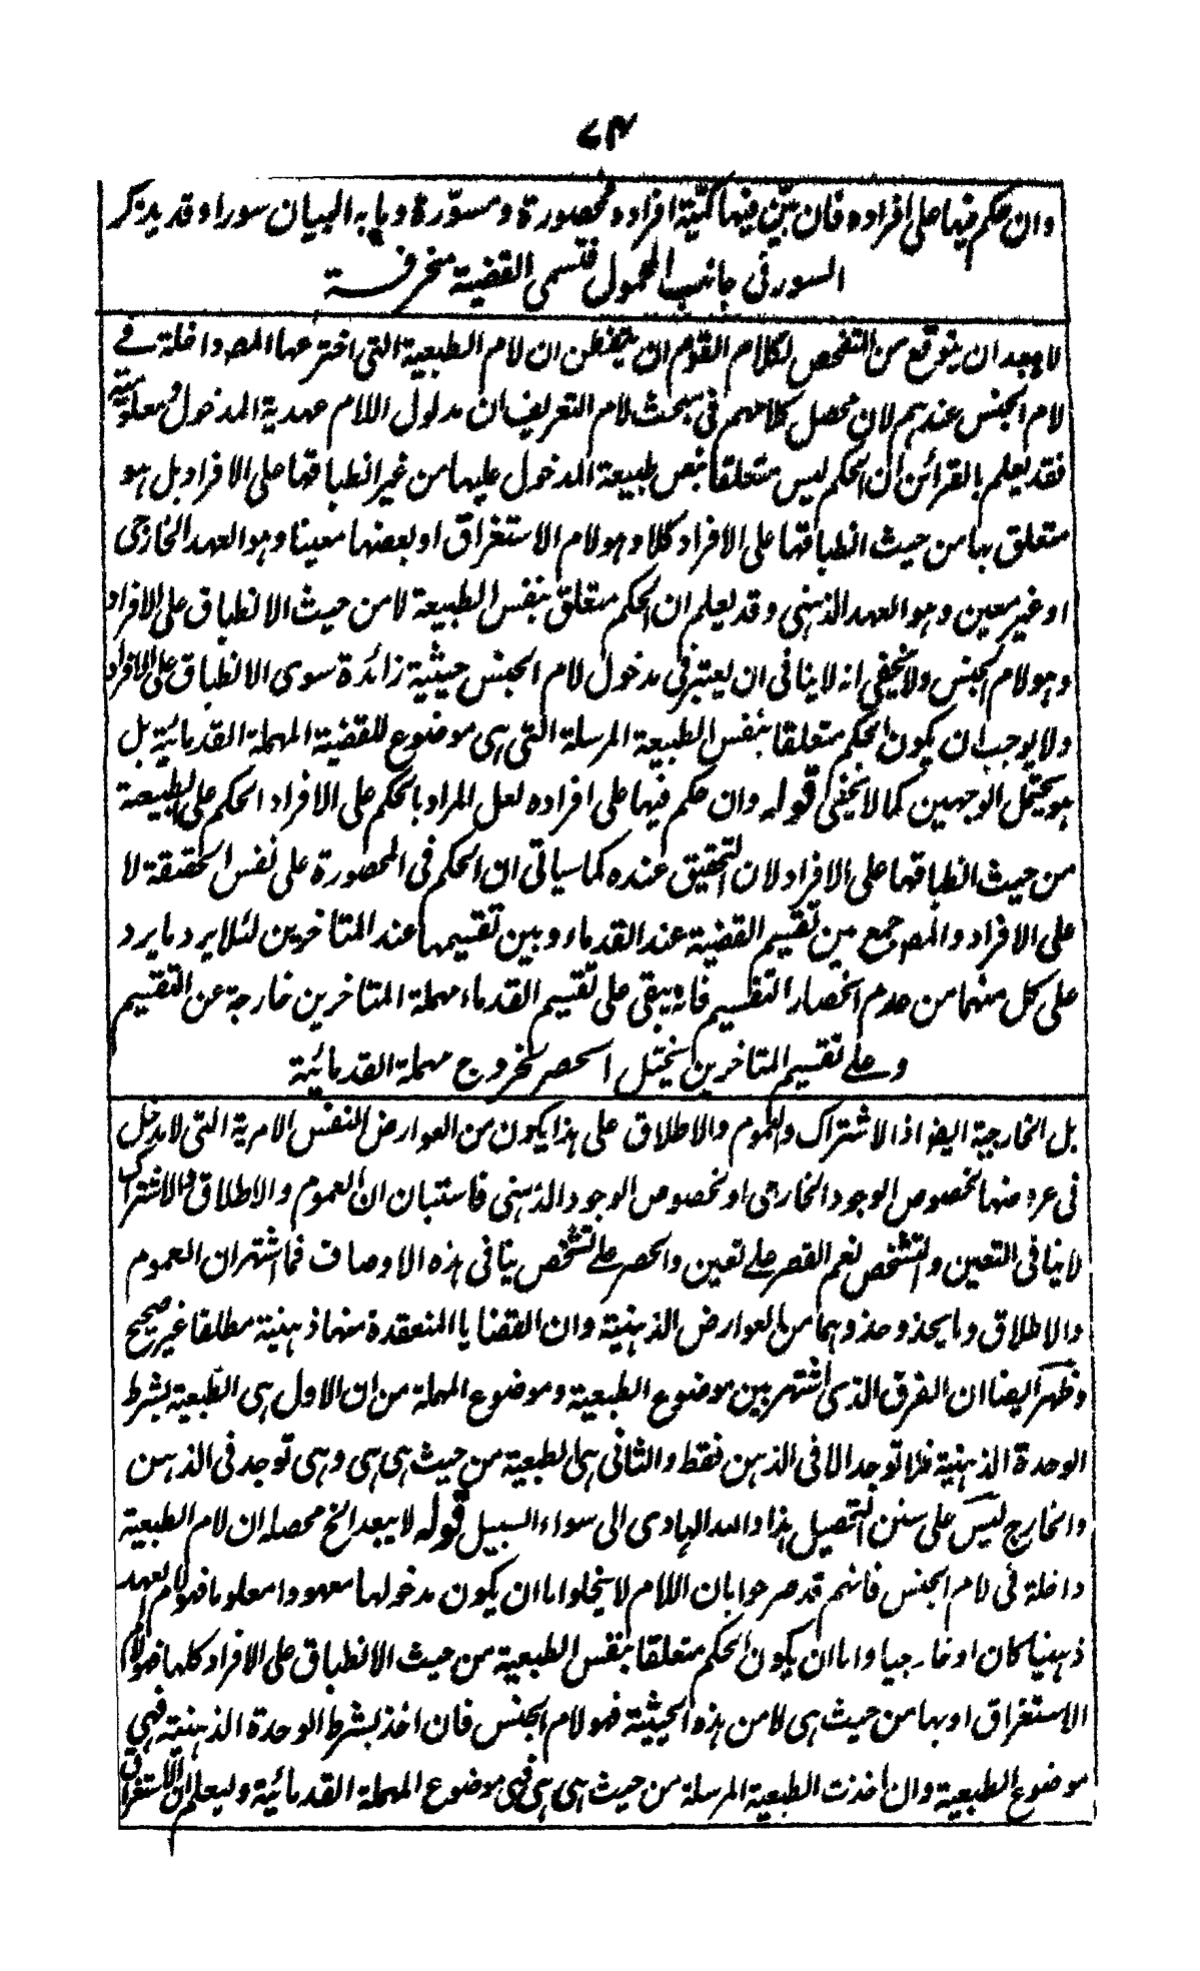 ٧٤
وان حكم فيها على افراده فان بيّن فيها كمّيّة افراده فمحصورة ومسوّرة وما به البيان سورا وقد يذكر
السور فى جانب المحمول فتسمى القضية منحرفة
لا يبعد ان يتوقع من التفحص لكلام القوم ان يتفطن ان لام الطبعية التى اخترعها المصـ داخلة فے
لام الجنس عندهم لان محصل كلامهم فى مبحث لام التعريف ان مدلول اللام عهدية المدخول ومعلوميته
فقد يعلم بالقرائن ان الحكم ليس متعلقا بنفس طبيعة المدخول عليها من غير انطباقها على الافراد بل هو
متعلق بها من حيث انطباقها على الافراد كلا وهو لام الاستغراق او بعضها معينا وهو العهد الخارجى
او غير معين وهو العهد الذهنى وقد يعلم ان الحكم متعلق بنفس الطبيعة لا من حيث الانطباق على الافراد
وهو لام الجنس ولا يخفى انه لا ينافى ان يعتبر فى مدخول لام الجنس حيثية زائدة سوى الانطباق على الافراد
ولا يوجب ان يكون الحكم متعلقا بنفس الطبيعة المرسلة التى هى موضوع للقضية المهملة القدمائية بل
هو يحتمل الوجهين كما لا يخفى قوله وان حكم فيها على افراده لعل المراد بالحكم على الافراد الحكم على الطبيعة
من حيث انطباقها على الافراد لان التحقيق عنده كما سياتى ان الحكم فى المحصورة على نفس الحقيقة لا
على الافراد والمصـ جمع بين تقسيم القضية عند القدماء وبين تقسيمها عند المتاخرين لئلا يرد ما يرد
على كل منهما من عدم انحصار التقسيم فانه يبقى على تقسيم القدماء مهملة المتاخرين خارجة عن التقسيم
وعلے تقسيم المتاخرين يختل الحصر لخروج مهملة القدمائية
بل الخارجية ايضا اذ الاشتراك والعموم والاطلاق على هذا يكون من العوارض النفس الامرية التى لا مدخل
فى عروضها لخصوص الوجود الخارجى او لخصوص الوجود الذهنى فاستبان ان العموم والاطلاق والاشتراك
لا ينافى التعين والتشخص نعم القصر علے تعين والحصر علے تشخص ينافى هذه الاوصاف فما اشتهر ان العموم
والاطلاق وما يحذو حذوهما من العوارض الذهنية وان القضايا المنعقدة منها ذهنية مطلقا غير صحيح
وظهر ايضا ان الفرق الذى اشتهر بين موضوع الطبعية وموضوع المهملة من ان الاول هى الطبعية بشرط
الوحدة الذهنية فلا توجد الا فى الذهن فقط والثانى هى الطبعية من حيث هى هى وهى توجد فى الذهن
والخارج ليس على سنن التحصيل هذا والله الهادى الى سواء السبيل قوله لا يبعد الخ محصله ان لام الطبعية
داخلة فى لام الجنس فانهم قد صرحوا بان اللام لا يخلوا اما ان يكون مدخولها معهودا معلوما فهو لام العهد
ذهنيا كان او خارجيا واما ان يكون الحكم متعلقا بنفس الطبعية من حيث الانطباق على الافراد كلها فهو لام
الاستغراق او بها من حيث هى لا من هذه الحيثية فهو لام الجنس فان اخذ بشرط الوحدة الذهنية فهى
موضوع الطبعية وان اخذت الطبعية المرسلة من حيث هى هى فهى موضوع المهملة القدمائية وليعلم ان الاستغراق